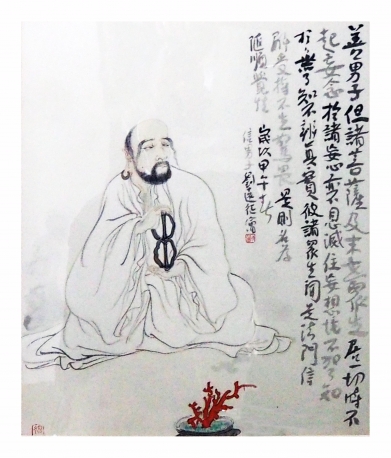 善男子但諸菩薩及末世眾生居一切時不
起妄念於諸妄心亦不息滅住妄想境不加了知
於無了知不辨真實彼諸眾生聞是法門信
解受持不生驚畏是則名為
隨順覺性
歲次甲午